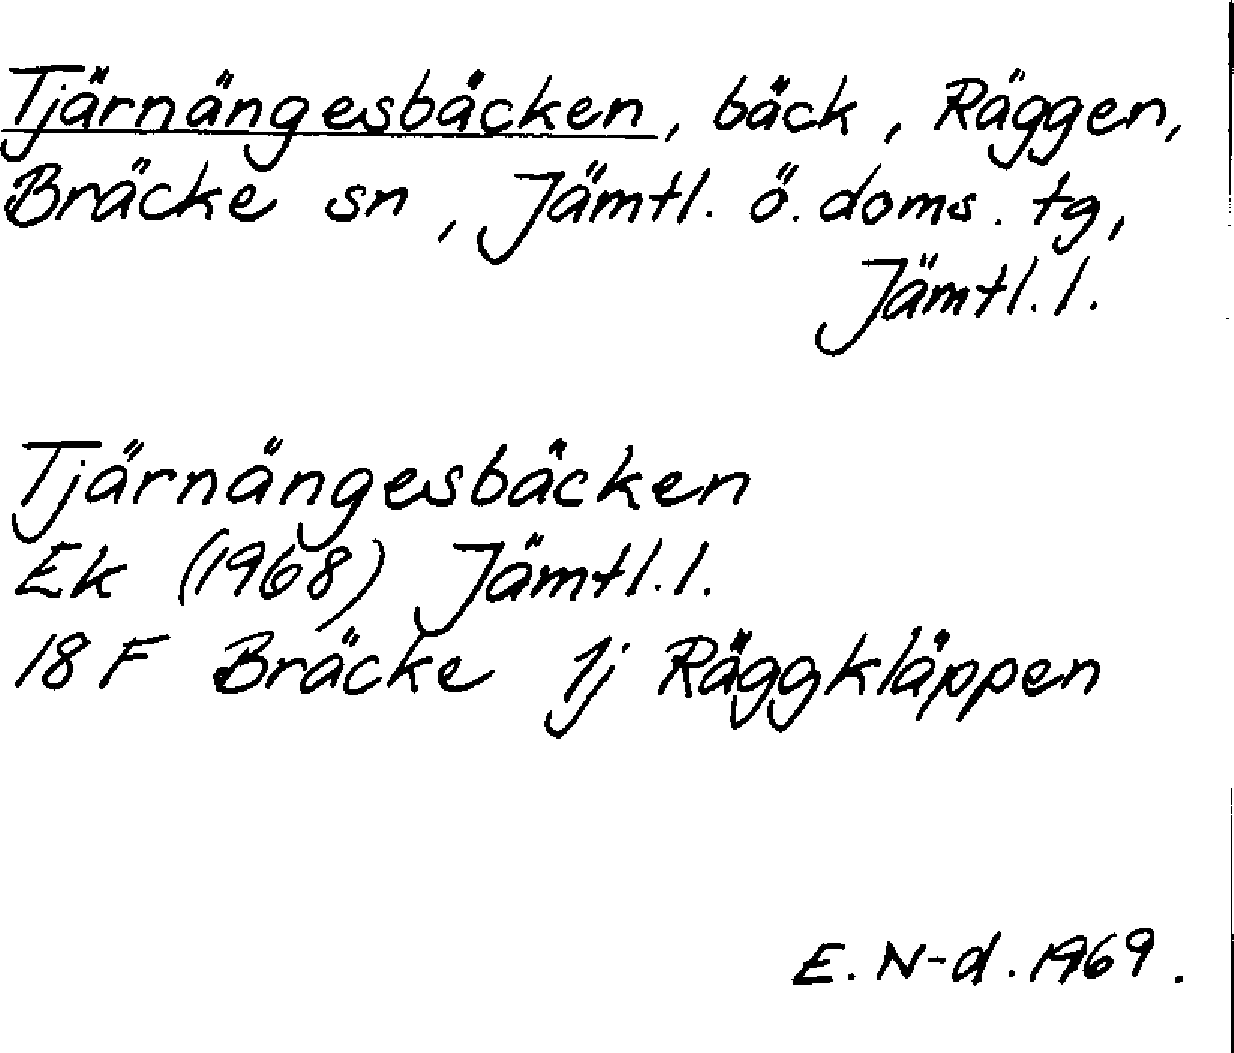 Tjärnängesbäcken, bäck, Räggen,
Bräcke sn, Jämtl. ö. doms. tg,
Jämtl. l.
Tjärnängesbäcken
Ek (1968) Jämtl. l.
18 F Bräcke 1j Räggkläppen
E. N-d. 1969.